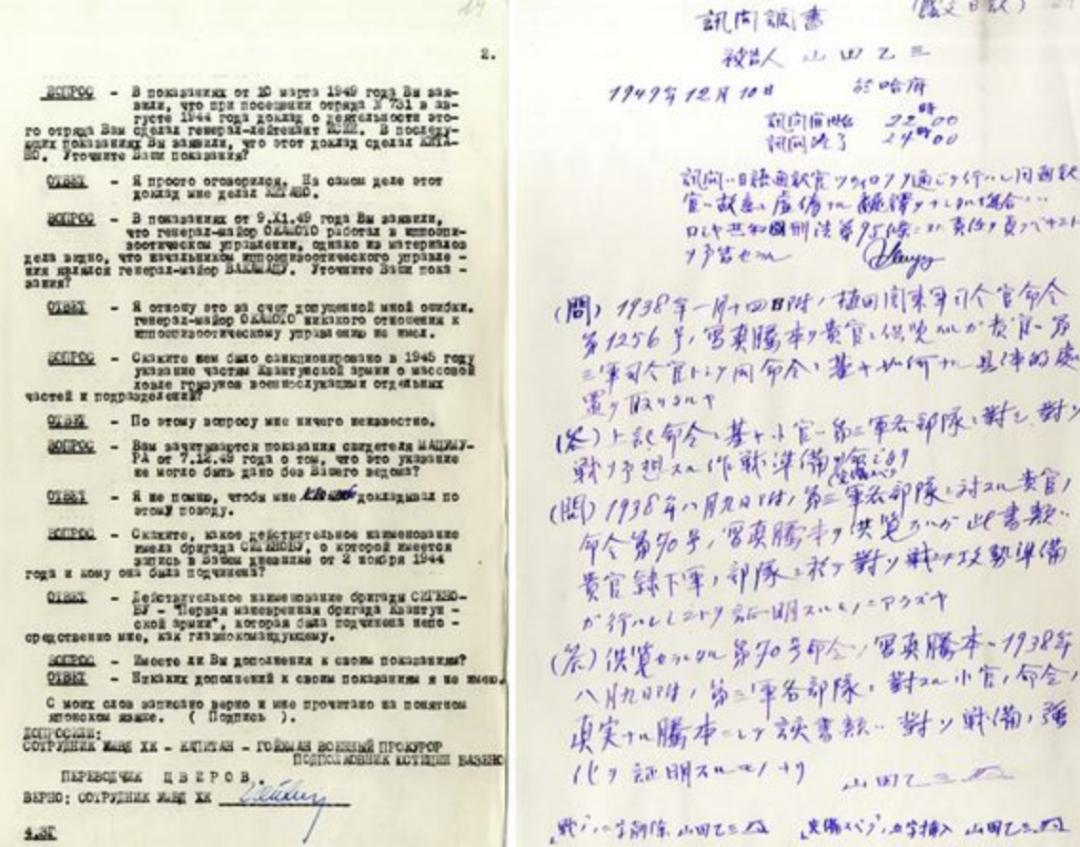 2.
ВОПРОС - В показаниях от 10 марта 1949 года Вы зая-
вили, что при посещении отряда № 731 в ав-
густе 1944 года доклад о деятельности это-
го отряда Вам сделал генерал-лейтенант ИСИИ. В последу-
ющих показаниях Вы заявили, что этот доклад сделал КИТА-
НО. Уточните Ваши показания?
ОТВЕТ - Я просто оговорился. На самом деле этот
доклад мне делал КИТАНО.
ВОПРОС - В показаниях от 9.XI.49 года Вы заявили,
что генерал-майор ОКАМОТО работал в иппоэпи-
зоотическом управлении, однако из материалов
дела видно, что начальником иппоэпизоотического управле-
ния являлся генерал-майор ВАКАМАЦУ. Уточните Ваши пока-
зания?
ОТВЕТ - Я отношу это за счет допущенной мной ошибки,
генерал-майор ОКАМОТО никакого отношения к
иппоэпизоотическому управлению не имел.
ВОПРОС - Скажите кем было санкционировано в 1945 году
указание частям Квантунской армии о массовой
ловле грызунов военнослужащими отдельных
частей и подразделений?
ОТВЕТ - По этому вопросу мне ничего неизвестно.
ВОПРОС - Вам зачитываются показания свидетеля МАЦУМУ-
РА от 7.12.49 года о том, что это указание
не могло быть дано без Вашего ведома?
ОТВЕТ - Я не помню, чтобы мне докладывал по
этому поводу.
ВОПРОС - Скажите, какое действительное наименование
имела бригада СИГЕНОБУ, о которой имеется
запись в Вашем дневнике от 2 ноября 1944
года и кому она была подчинена?
ОТВЕТ - Действительное наименование бригады СИГЕНО-
БУ - "Первая маневренная бригада Квантун-
ской армии", которая была подчинена непо-
средственно мне, как главнокомандующему.
ВОПРОС - Имеете ли Вы дополнения к своим показаниям?
ОТВЕТ - Никаких дополнений к своим показаниям я не имею.
С моих слов записано верно и мне прочитано на понятном
японском языке. ( Подпись ).
ДОПРОСИЛИ:
СОТРУДНИК УМВД ХК - КАПИТАН - ГОЙХМАН ВОЕННЫЙ ПРОКУРОР
ПОДПОЛКОВНИК ЮСТИЦИИ БАЗЕНКО
ПЕРЕВОДЧИК ЦВИРОВ.
ВЕРНО: СОТРУДНИК УМВД ХК
4.ЗГ
訊問調書
被告人 山田乙三
1949年12月10日 於哈府
訊問開始 22時00
訊問終了 24時00
訊問ハ日語通訳官ツヴィロフヲ通ジテ行ハレ同通訳
官ハ故意ニ虚偽ナル翻譯ヲナシタル場合ハ
ロシヤ共和國刑法第95條ニヨル責任ヲ負フベキコト
ヲ予告セラル
(問) 1938年一月十四日附、植田関東軍司令官命令
第1256号ノ写真謄本ヲ貴官ニ供覧スルガ貴官ハ第
三軍司令官トシテ同命令ニ基キ如何ナル具体的処
置ヲ取リタルヤ
(答) 上記命令ニ基キ小官ハ第三軍各部隊ニ對シ對ソ
戦ヲ予想スル作戦準備
(問) 1938年八月九日附、第三軍各部隊ニ対スル貴官ノ
命令第90号ノ写真謄本ヲ供覧スルガ此書類ハ
貴官隷下軍ノ部隊ニ於テ對ソ戦ノ攻勢準備
ガ行ハレシコトヲ証明スルモノニアラズヤ
(答) 供覧セラレタル第90号命令ノ写真謄本ハ1938年
八月九日附、第三軍各部隊ニ對スル小官ノ命令ノ
真実ナル謄本ニシテ該書類ハ對ソ戦備ノ強
化ヲ証明スルモノナリ 山田乙三
山田乙三 山田乙三